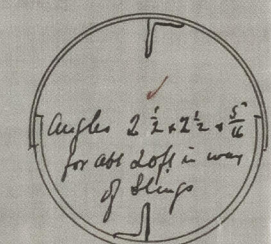 Angles 2 1/2 x 2 1/2 x 5/16
for abt 20ft in way
of Slings